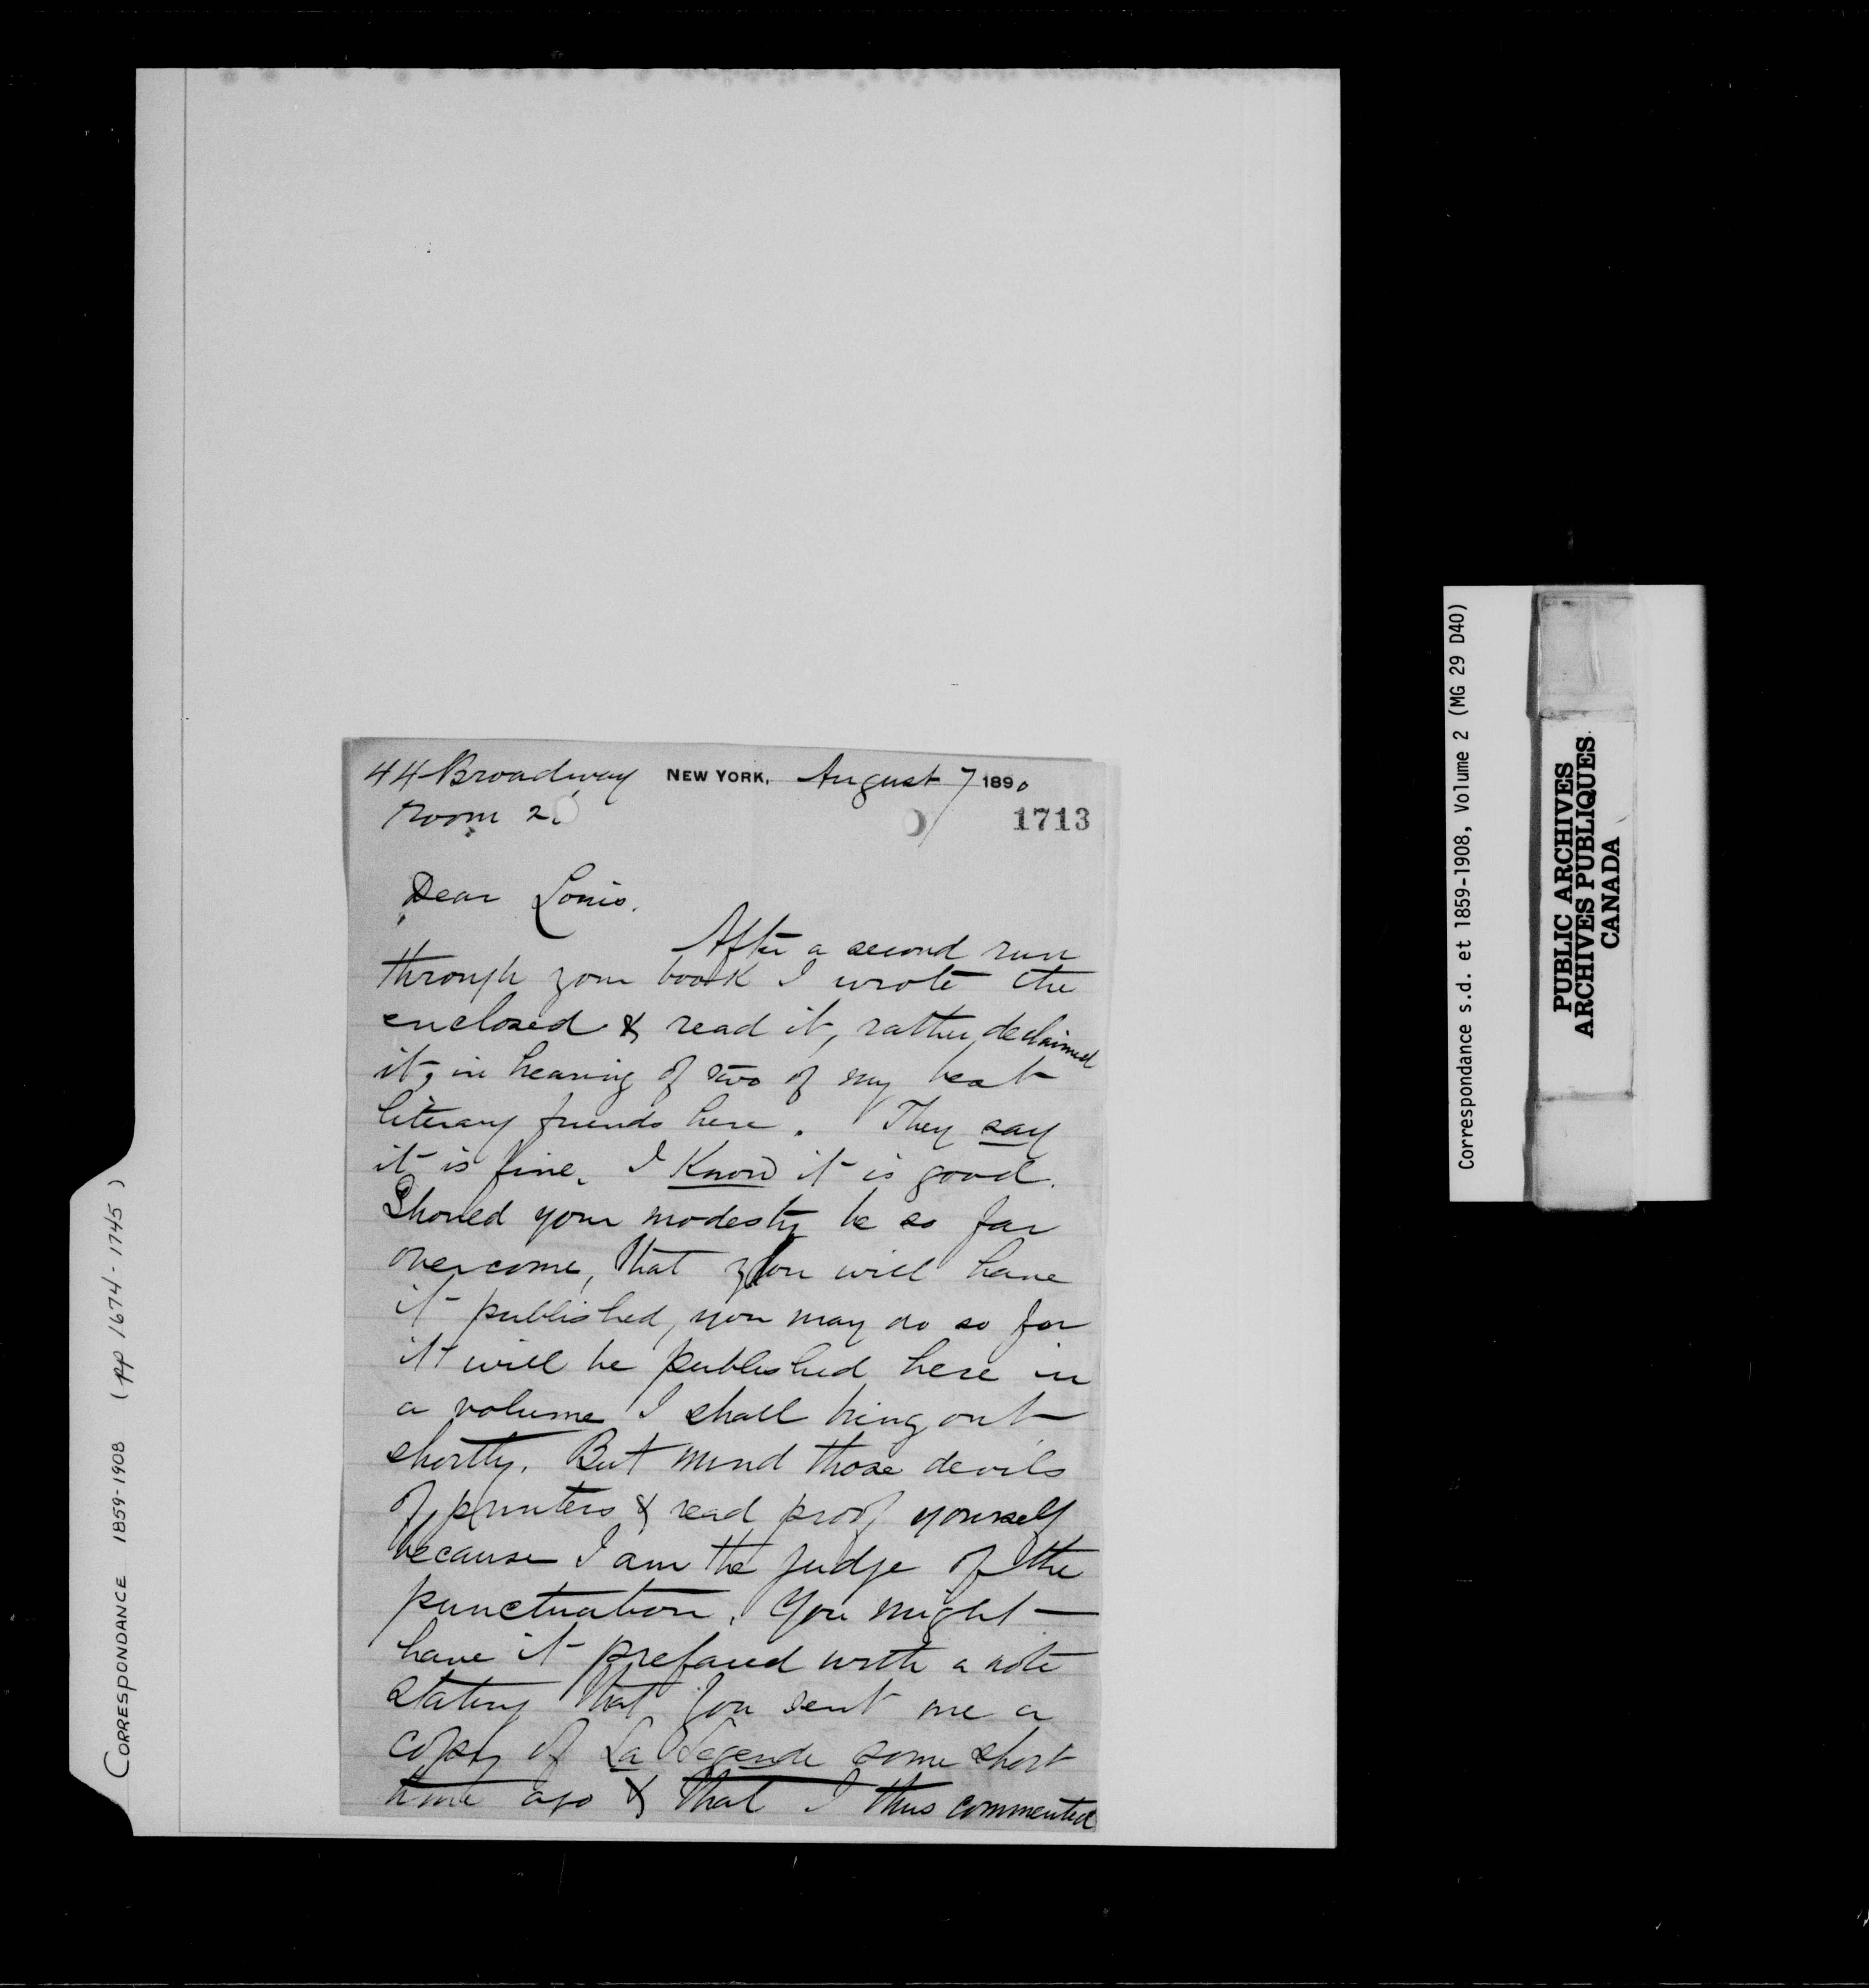 44 Broadway NEW YORK, August 7 1890
Room 2.
1713
Dear Louis.
After a second run
through your book I wrote the
enclosed & read it, rather, declaimed
it, in hearing of two of my best
literary friends here. They say
it is fine. I Know it is good.
Should your modesty be so far
overcome, that you will have
it published, you may do so for
it will be published here in
a volume I shall bring out
shortly. But mind those devils
of printers & read proof yourself
because I am the judge of the
punctuation. You might
have it prefaced with a note
stating that you sent me a
copy of La Légende some short
time ago & that I thus commented
CORRESPONDANCE 1859-1908 (pp 1674-1745)
Correspondance s.d. et 1859-1908, Volume 2 (MG 29 D40)
PUBLIC ARCHIVES
ARCHIVES PUBLIQUES
CANADA